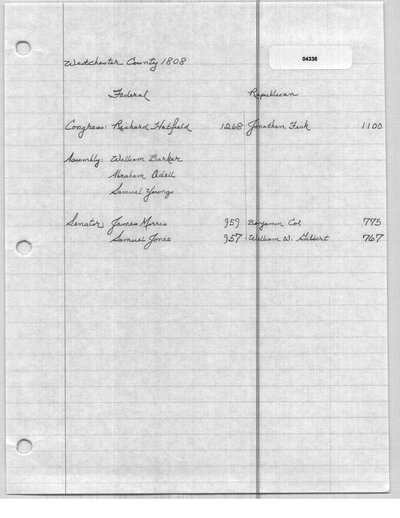 04336
Westchester County 1808
Federal Republican
Congress: Richard Hatfield 1268 Jonathan Fisk 1100
Assembly: William Barker
Abraham Odell
Samuel Youngs
Senator James Morris 959 Benjamin Coe 775
Samuel Jones 957 William W. Gilbert 767